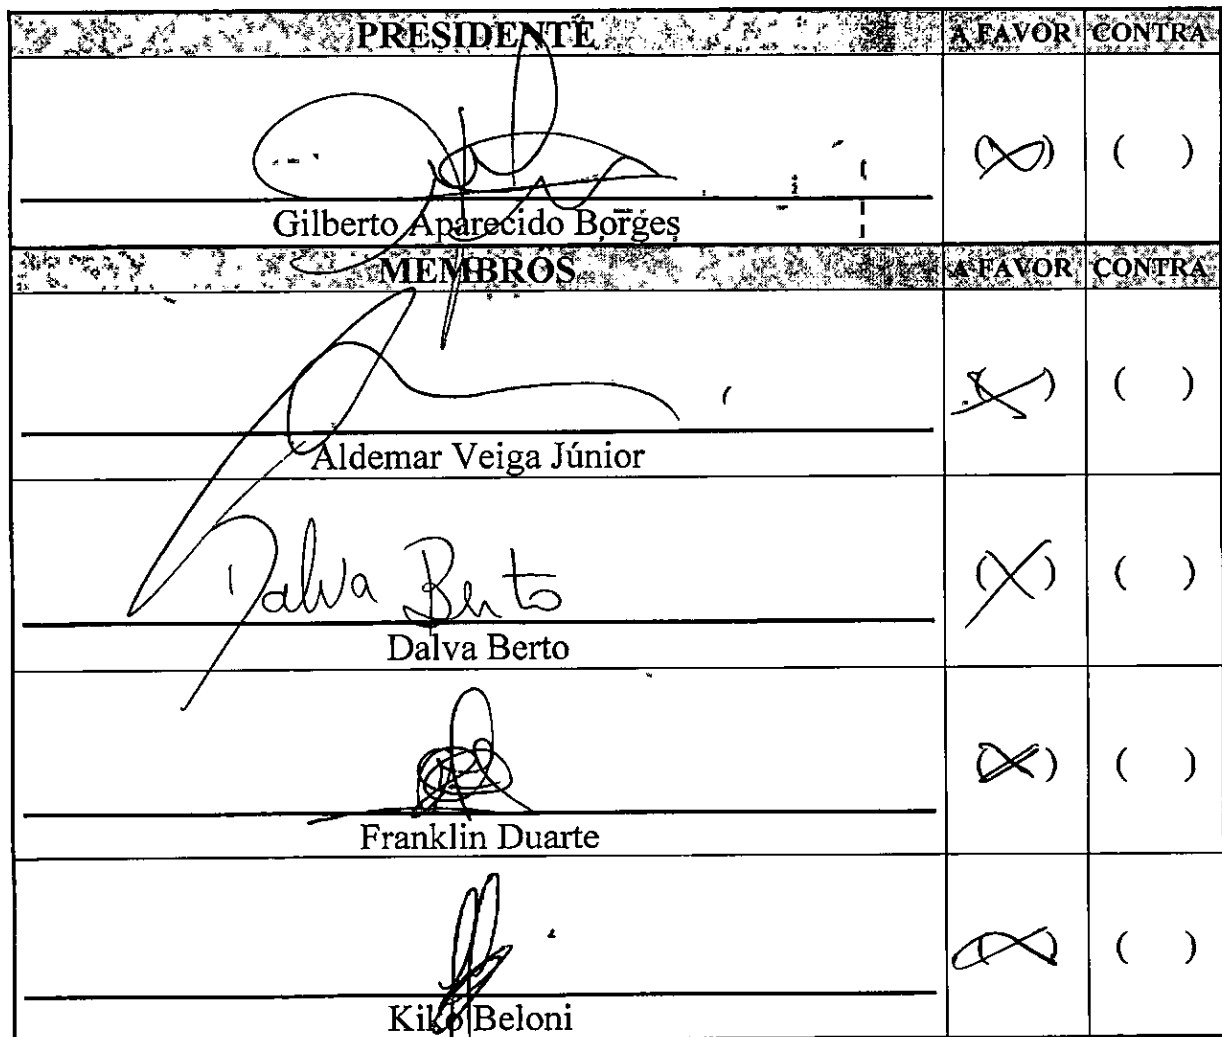 PRESIDENTE A FAVOR CONTRA
( ) ( )
Gilberto Aparecido Borges
MEMBROS A FAVOR CONTRA
(X) ( )
Aldemar Veiga Júnior
(X) ( )
Dalva Berto
Dalva Berto
(X) ( )
Franklin Duarte
(X) ( )
Kiko Beloni